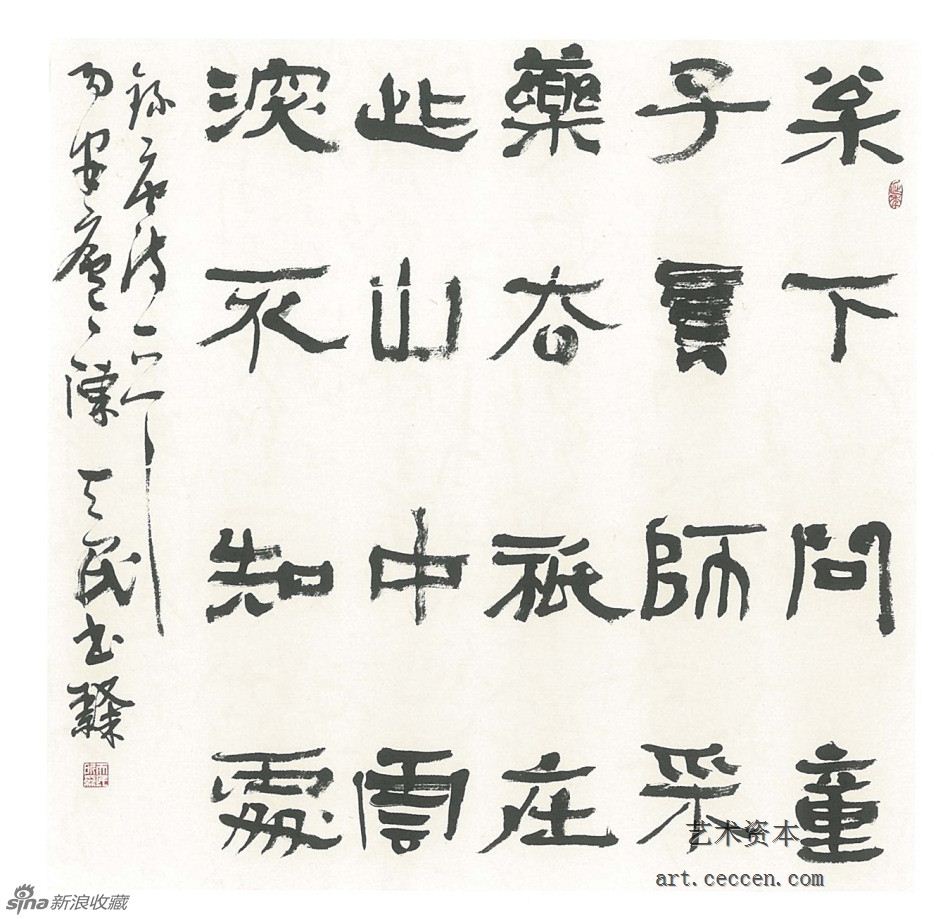 枀下問童
子言師采
藥去祇在
此山中雲
深不知處
錄唐詩一首
廬陳天民書隸
艺术资本
art.ceccen.com
sina新浪收藏